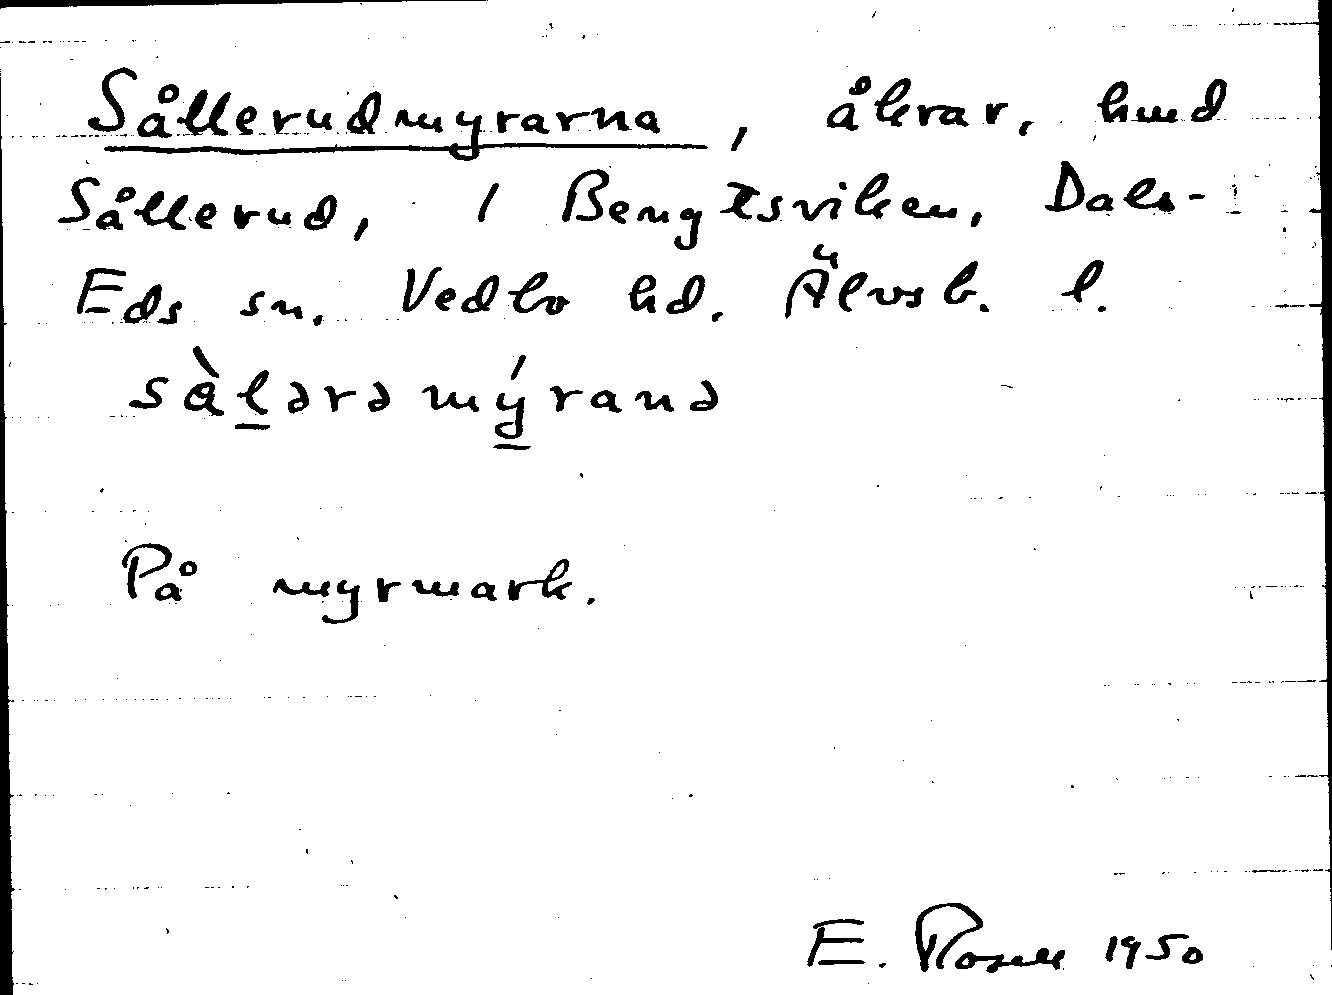 Sållerudmyrarna, åkrar, hmd
Sållerud, 1 Bengtsviken, Dals-
Eds sn. Vedbo hd. Älvsb. l.
sàlərə mýranə
På myrmark.
E. Rosell 1950